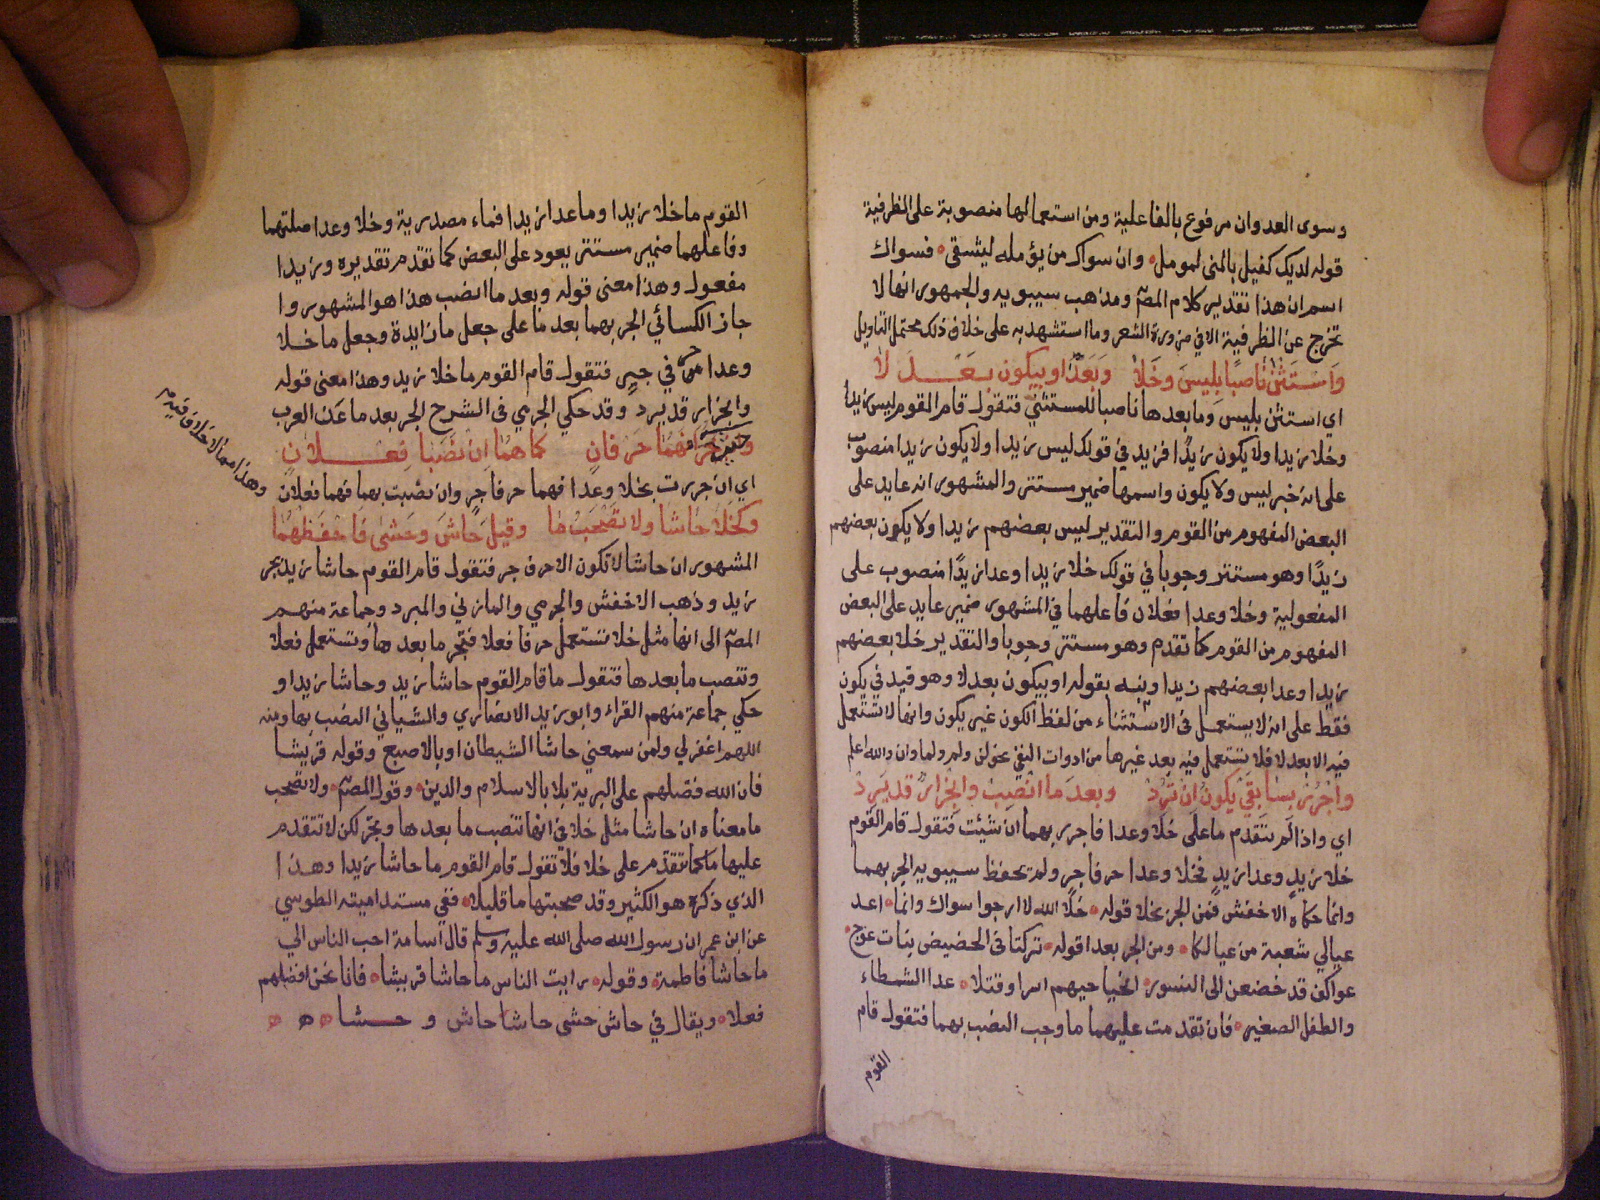 وسوى العدوان مرفوع بالفاعلية ومن استعمالها منصوبة على الظرفية
قوله لديك كفيل بالمنى لمومل وان سواك من يؤمله ليشقى فسواك
اسم ان هذا تقدير كلام المصّ ومذهب سيبويه والجمهور انها لا
تخرج عن الظرفية الا في ضرورة الشعر وما استشهد به على خلاف ذلك محتمل التاويل
وَاسْتَثْنِ نَاصبًا بِلَيسَ وخَلَا وَبِعَدَا وبيكون بـعـد لا
اي استثن بليس وما بعدها ناصبا للمستثنى فتقول قام القوم ليس زيدا
وخلا زيدا ولا يكون زيدًا فزيد في قولك ليس زيدا ولا يكون زيدا منصوب
على انه خبر ليس ولا يكون واسمها ضمير مستتر والمشهور انه عايد على
البعض المفهوم من القوم والتقدير ليس بعضهم زيدا ولا يكون بعضهم
زيدًا وهو مستتر وجوبا في قولك خلا زيدا وعدا زيدًا منصوب على
المفعولية وخلا وعدا فعلان فاعلهما في المشهور ضمير عايد على البعض
المفهوم من القوم كما تقدم وهو مستتر وجوبا والتقدير خلا بعضهم
زيدا وعدا بعضهم زيدا ونبه بقوله وبيكون بعد لا وهو قيد في يكون
فقط على انه لا يستعمل في الاستثناء من لفظ الكون غير يكون وانها لا تستعمل
فيه الا بعد لا فلا تستعمل فيه بعد غيرها من ادوات النفي نحو لن ولم ولما وان والله اعلم
واجْرُرْ بسَابِقَيْ يَكُونُ ان تُرِدْ وبعدَ ما انْصِبْ وانْجِرَارٌ قد يَرِدْ
اي واذا لم تتقدم ما على خلا وعدا فاجرر بهما ان شئت فتقول قام القوم
خلا زيدٍ وعدا زيدٍ فخلا وعدا حرفا جر ولم يحفظ سيبويه الجر بهما
وانما حكاه الاخفش فمن الجر بخلا قوله خلا الله لا ارجوا سواك وانما اعد
عيالي شعبة من عيالكا ومن الجر بعدا قوله تركنا في الحضيض بنات عوج
عواكف قد خضعن الى النسور ابحنا حيهم اسرا وقتلا عدا الشمطاء
والطفل الصغير فان تقدمت عليهما ما وجب النصب بهما فتقول قام
القوم
القوم ما خلا زيدا وما عدا زيدا فماء مصدرية وخلا وعدا صلتهما
وفاعلهما ضمير مستتر يعود على البعض كما تقدم تقديره وزيدا
مفعول وهذا معنى قوله وبعد ما انصب هذا هو المشهور وا
جاز الكسائي الجر بهما بعد ما على جعل ما زايدة وجعل ما خلا
وعدا حرفي جر فتقول قام القوم ما خلا زيد وهذا معنى قوله
وانجرار قد يرد وقد حكي الجرمي في الشرح الجر بعد ما عن العرب
وحيث جَرَّا فهُمَا حَرفَانِ كما هُمَا اِنْ نَصَبَا فِعْـلَانِ
اي ان جررت بخلا وعدا فهما حرفا جر وان نصبت بهما فهما فعلان
وهذا مما لا خلاف فيه
وكخَلَا حَاشَا ولا تَصْحَبُ مَا وقيل حَاشَ وحَشَى فَاحْفَظْهُمَا
المشهور ان حاشا لا تكون الا حرف جر فتقول قام القوم حاشا زيد بجر
زيد وذهب الاخفش والجرمي والمازني والمبرد وجماعة منهم
المصّ الى انها مثل خلا تستعمل حرفا فعلا فتجر ما بعدها وتستعمل فعلا
وتنصب ما بعدها فتقول ما قام القوم حاشا زيد وحاشا زيدا و
حكي جماعة منهم الفراء وابو زيد الانصاري والشيباني النصب بها ومنه
اللهم اغفر لي ولمن سمعني حاشا الشيطان وبالاصبع وقوله قريشا
فان الله فضلهم على البرية بلا بالاسلام والدين وقول المصّ ولا تصحب
ما معناه ان حاشا مثل خلا في انها تنصب ما بعدها وتجر لكن لا تتقدم
عليها ما كما تتقدم على خلا فلا تقول قام القوم ما حاشا زيدا وهذا
الذي ذكره هو الكثير وقد صحبتها ما قليلا ففي مسند ابي امية الطوسي
عن ابن عمر ان رسول الله صلى الله عليه وسلم قال اسامة احب الناس الي
ما حاشا فاطمة وقوله رايت الناس ما حاشا قريشا فانا نحن افضلهم
فعلا ويقال في حاش حشى حاشا حاش و حـشـا ه ه ه